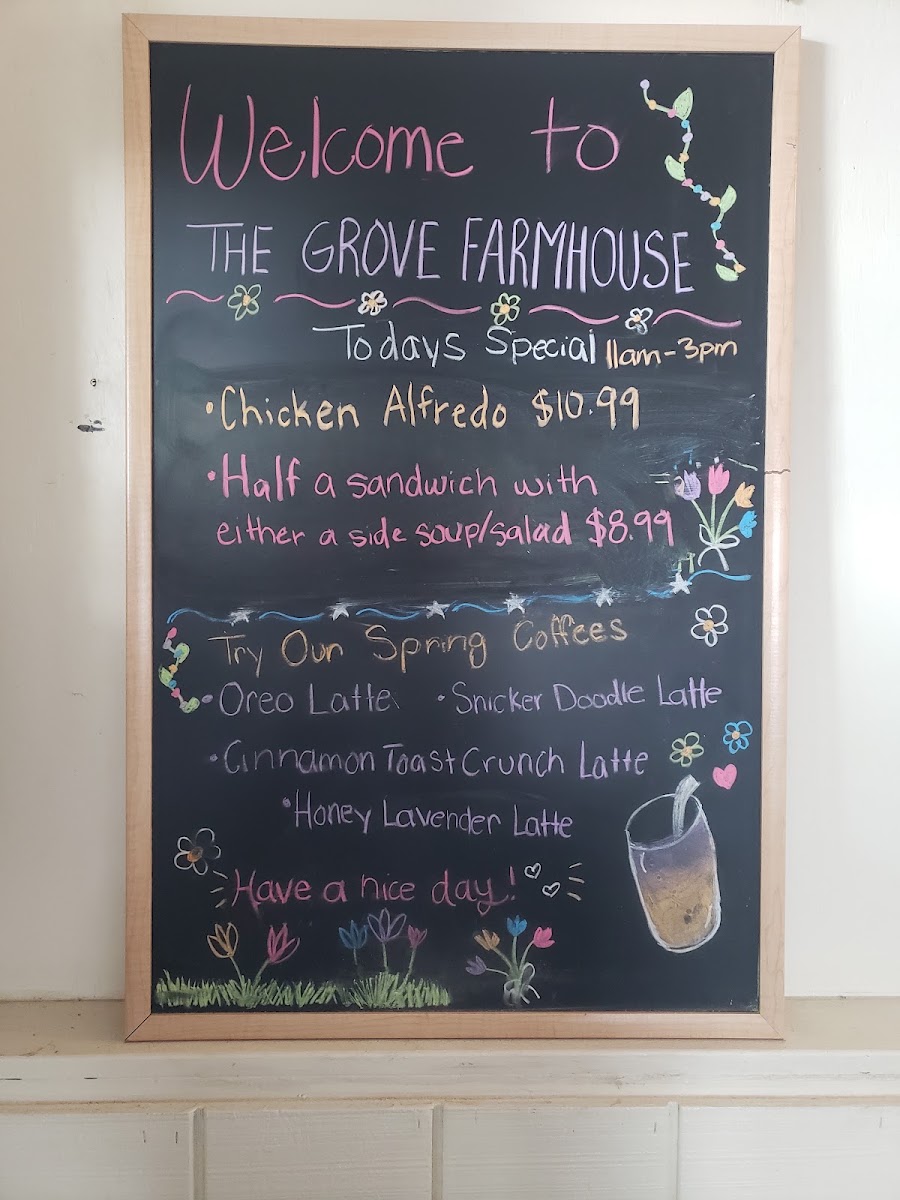 Welcome to
THE GROVE FARMHOUSE
Todays Special 11am-3pm
•Chicken Alfredo $10.99
•Half a sandwich with
either a side soup/salad $8.99
Try Our Spring Coffees
•Oreo Latte •Snicker Doodle Latte
•Cinnamon Toast Crunch Latte
•Honey Lavender Latte
Have a nice day!